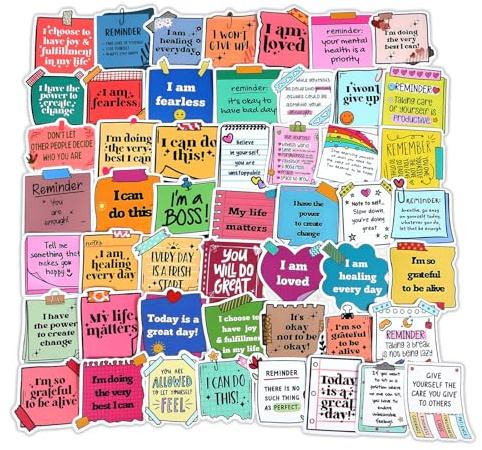 I choose to
have joy &
fulfillment
in my life
REMINDER
I am
healing
everyday
I WON'T
GIVE UP!
I am
loved
reminder:
your mental
health is a
priority
I'm doing
the very
best I can!
I have the
power to
create
change
I am
fearless
I am
fearless
reminder:
it's okay to
have bad day
I won't
give up
REMINDER
Taking care
of yourself is
PRODUCTIVE
DON'T LET
OTHER PEOPLE DECIDE
WHO YOU ARE
I'm doing
the very
best I can
I can do
this!
Believe
in yourself,
you are
unstoppable
REMEMBER
Reminder
You
are
enough!
I can
do this
I'm a
BOSS!
My life
matters
I have the
power
to create
change
Note to self..
Slow down,
you're doing
great
REMINDER:
Tell me
something that
makes you
happy
notes
I am
healing
every day
EVERY DAY
IS A FRESH
START
YOU
WILL DO
GREAT
I am
loved
I am
healing
every day
I'm so
grateful
to be alive
I have
the power
to create
change
My life
matters
Today is a
great day!
I choose to
have joy &
fulfillment
in my life
It's
okay
not to be
okay!
I'm so
grateful
to be
alive
REMINDER:
Taking a break
is not being lazy
I'm so
grateful
to be alive
I'm doing
the very
best I can
YOU ARE
ALLOWED
TO LET YOURSELF
FEEL
I CAN DO
THIS!
REMINDER
THERE IS NO
SUCH THING
AS PERFECT.
Today
is a
great
day!
GIVE
YOURSELF THE
CARE YOU GIVE
TO OTHERS